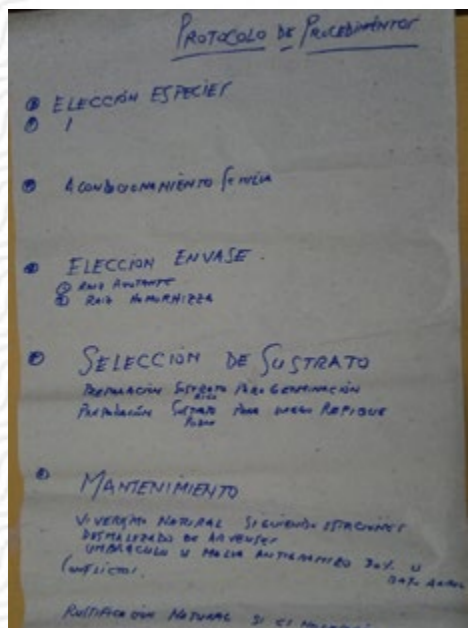 PROTOCOLO DE PROCEDIMIENTOS
ELECCIÓN ESPECIES
1
ACONDICIONAMIENTO SEMILLA
ELECCIÓN ENVASE.
① RAIZ
② RAIZ
SELECCIÓN DE SUSTRATO
PREPARACIÓN SUSTRATO PARA GERMINACIÓN
RICO
PREPARACIÓN SUSTRATO PARA LUEGO REPIQUE
POBRE
MANTENIMIENTO
VIVERISMO NATURAL SIGUIENDO ESTACIONES
DESMALEZADO DE ARVENSES
UMBRACULO U MALLA ANTIGRANIZO 30%. U
CONFLICTOS.
RUSTIFICACION NATURAL SI ES